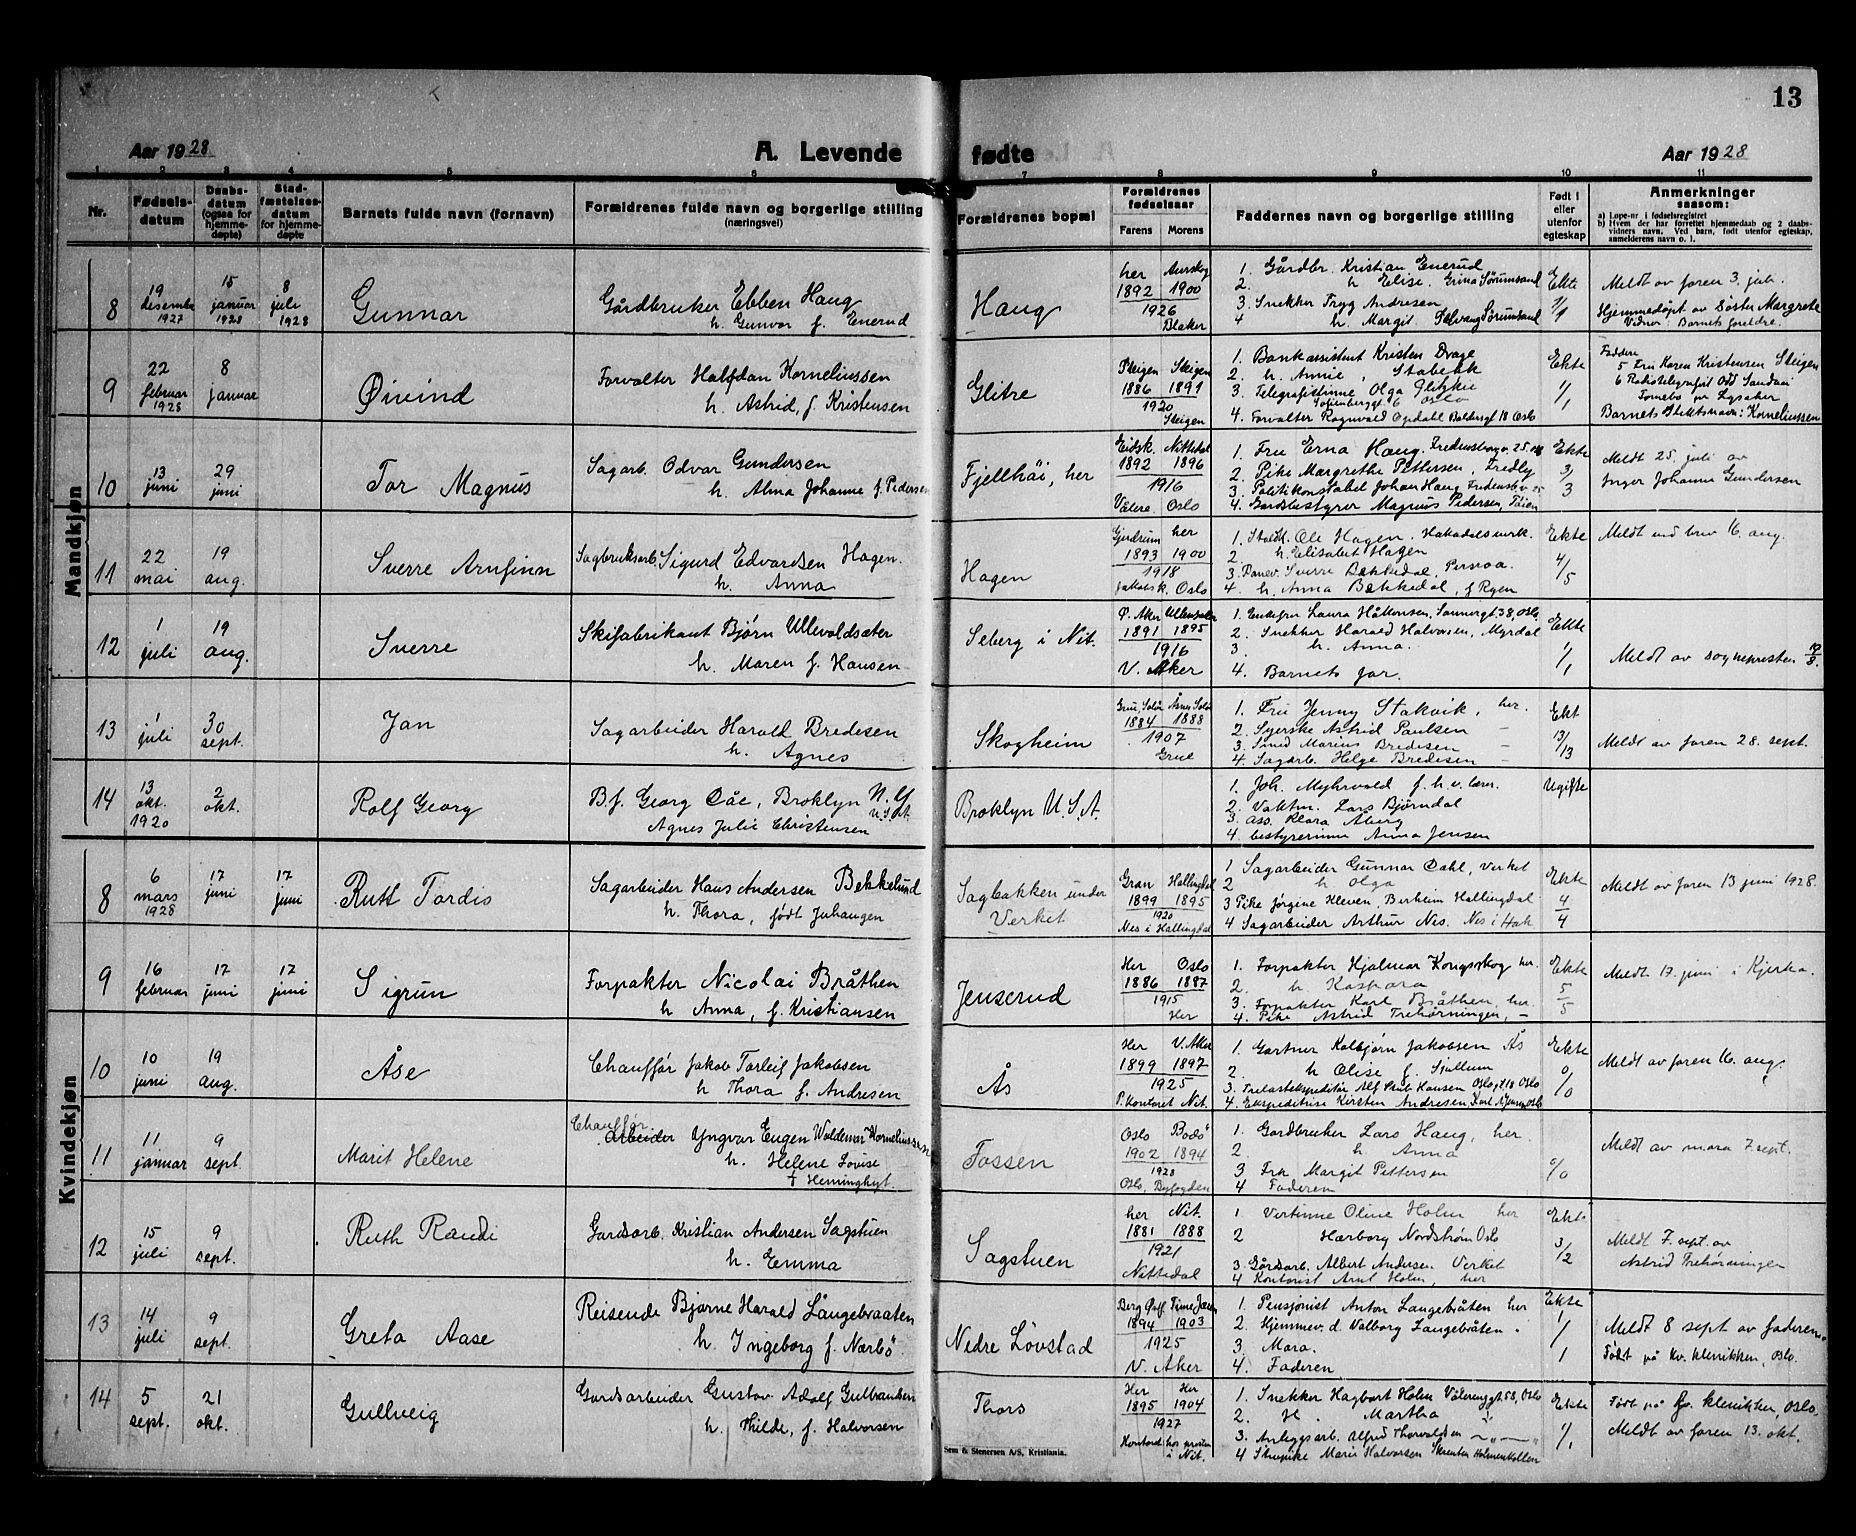 13
Aar 1928
A. Levende fødte
Aar 1928
1 2 3 4 5 6 7 8 9 10 11
Nr.
Fødsels-
datum
Daabs-
datum
(ogsaa for
hjemme-
døpte)
Stad-
fæstelses-
datum
for hjemme-
døpte
Barnets fulde navn (fornavn)
Forældrenes fulde navn og borgerlige stilling
(næringsvei)
Forældrenes bopæl
Forældrenes
fødselsaar
Farens Morens
Faddernes navn og borgerlige stilling
Født i
eller
utenfor
egteskap
Anmerkninger
saasom:
a) Løpe-nr i fødselsregistret
b) Hvem der har forrettet hjemmedaab og 2 daabs-
vidners navn. Ved barn, født utenfor egteskap,
anmelderens navn o. l.
Mandkjøn
8
19
desember
1927
15
januar
1928
8
juli
1928
Gunnar
Gårdbruker Ebben Haug
h. Gunvor f. Enerud
Haug
her Aurskog
1892 1900
1926
Blaker
1. Gårdbr. Kristian Enerud
2. h Elise. Sørumsand
3. Snekker Tryg Andresen
4 h. Margit Sørumsand
Ekte
1/1
Meldt av faren 3. juli.
Hjemmedøpt av Søster Margrete
Vidner: Barnets foreldre.
9
22
februar
1928
8
januar
Øivind
Forvalter Halfdan Korneliussen
h. Astrid, f. Kristensen
Glitre
Steigen Steigen
1886 1891
1920
Steigen
1. Bankassistent Kristen Drage
2. h. Annie, Stabekk
3. Telegrafistinne Olga
Oslo
4. Forvalter Ragnvald Opdahl Oslo
Ekte
1/1
Faddere
5 Fru Karen Kristensen Steigen
6 Radiotelegrafist Odd
Fornebo pr Lysaker
Barnets slektsnavn: Korneliussen
10
13
juni
29
juni
Tor Magnus
Sagarb. Odvar Gundersen
h. Alma Johanne f. Pedersen
Fjellhöi, her
Eidsk. Nittedal
1892 1896
1916
Våler. Oslo
1. Fru Erna Haug,
2. Pike Margrethe Pettersen, Fredly
3. Politikonstabel Johan Haug,
4. Gårdsbestyrer Magnus Pedersen, Tøien
Ekte
3/3
Meldt 25. juli av
Inger Johanne Gundersen
11
22
mai
19
aug.
Sverre Arnfinn
Sagbruksarb. Sigurd Edvardsen Hagen.
h. Anna
Hagen
Gjerdrum her
1893 1900
1918
Jakobsk. Oslo
1. Ole Hagen. Hakadalsverk.
2. h. Elisabet Hagen
3. Sverre Bekkedal,
4. h. Anna Bekkedal, f Ryen
Ekte
4/5
Meldt ved brev 16 aug.
12
1
juli
19
aug.
Sverre
Skifabrikant Bjørn Ullevoldsæter
h. Maren f. Hansen
Seberg i Nit.
Ø. Aker Ullensaker
1891 1895
1916
V. Aker
1. Enkefru Laura Håkonsen, Sannergt. 38, Oslo
2. Snekker Harald Halvorsen, Myrdal
3. h. Anna.
4. Barnets far.
Ekte
1/1
Meldt av sognepresten 10/8.
13
1
juli
30
sept.
Jan
Sagarbeider Harald Bredesen
h. Agnes
Skogheim
Grue, Solør Åsnes Solør
1884 1888
1907
Grue
1. Fru Jenny Stakvik, her.
2. Syerske Astrid Paulsen –
3. Smed Marius Bredesen –
4. Sagarb. Helge Bredesen –
Ekt
13/13
Meldt av faren 28. sept.
14
13
okt.
1920
2
okt.
Rolf Georg
B.f. Georg Dåe, Broklyn N.Y
U.S.A.
Agnes Julie Christensen
Broklyn U.S.A.
1. Joh. Myhrvold f.h.v. lærer.
2. Vaktm. Lars Bjørndal
3. ass. Klara Åberg
4. bestyrerinne Anna Jensen
Ugifte
Kvindekjøn
8
6
mars
1928
17
juni
17
juni
Rutt Tordis
Sagarbeider Hans Andersen Bekkelund
h. Thora, født Juhaugen
Sagbakken under
Verket
Gran Hallingdal
1899 1895
1920
Nes i Hallingdal
1 Sagarbeider Gunnar Dahl, Verket
2 h Olga
3 Pike Jørgine Kleven, Hallingdal
4 Sagarbeider Arthur Nes. Nes i Hak
Ekte
4/4
Meldt av faren 13 juni 1928.
9
16
februar
17
juni
17
juni
Sigrun
Forpakter Nicolai Bråthen
h Anna, f. Kristiansen
Jenserud
Her Oslo
1886 1887
1915
Her
1. Forpakter Hjalmar Kongsskog her.
2. h Kaspara
3. Forpakter Karl Bråthen, her.
4. Pike Astrid Trehörningen, –
Ekte
5/5
Meldt 17. juni i Kjerka.
10
10
juni
19
aug.
Åse
Chauffør Jakob Torleif Jakobsen
h Thora f. Andresen
Ås
Her V. Aker
1899 1897
1925
P.kontoret Nit.
1. Gartner Kolbjørn Jakobsen Ås
2. h Olise f. Sjøllum
3. Trelastekspeditør Alf Hansen Oslogt 18 Oslo
4. Ekspeditrise Kirsten Andresen, Oslo
Ekte
0/0
Meldt av faren 16 aug.
11
11
januar
9
sept.
Marit Helene
Chauffør
Arbeider Yngvar Eugen Waldemar Korneliussen
h. Helene Lovise
f Hemingkyt.
Fossen
Oslo Bodö
1902 1894
1928
Oslo, Byfogden
1. Gardbruker Lars Haug, her.
2. h Anna
3 Frk Margit Pettersen
4 Faderen
0/0
Meldt av mora 7. sept.
12
15
juli
9
sept.
Ruth Randi
Gardsarb. Kristian Andersen Sagstuen
h. Emma
Sagstuen
her Nit.
1881 1888
1921
Nittedal
1. Vertinne Oline Holm her
2 Hærborg Nordstrøm Oslo
3. Gårdsarb. Albert Andersen Verket
4 Kontorist Arnt Holm, her
Ekte
3/2
Meldt 7. sept. av
Astrid Trehörningen
13
14
juli
9
sept.
Greta Aase
Reisende Bjarne Harald Långebraaten
h. Ingeborg f. Nærbö.
Nedre Lövstad
Berg Østf. Time Jæren
1894 1903
1925
V. Aker
1. Pensjonist Anton Langebråten her
2. Hjemmev. d. Valborg Langebråten.
3. Mora.
4. Faderen
Ekte
1/1
Meldt 8 sept av faderen.
Født på Kv. klinikken, Oslo.
14
5
sept.
21
okt.
Gullveig
Gardsarbeider Gustav Adolf Gulbrandsen
h. Hilde, f. Halvorsen
Thors
Her Her
1895 1904
1927
Kontrad. hos presten
i Nit.
1. Snekker Hagbart Holm Vålerenggt. 58, Oslo
2. H. Martha
3. Anleggsarb. Alfred Thorvaldsen
4 Stuepike Marie Halvorsen Holmenkollen
Ekte
1/1
Født på klinikken, Oslo.
Meldt av faren 13. okt.
Sem & Stenersen A/S, Kristiania.